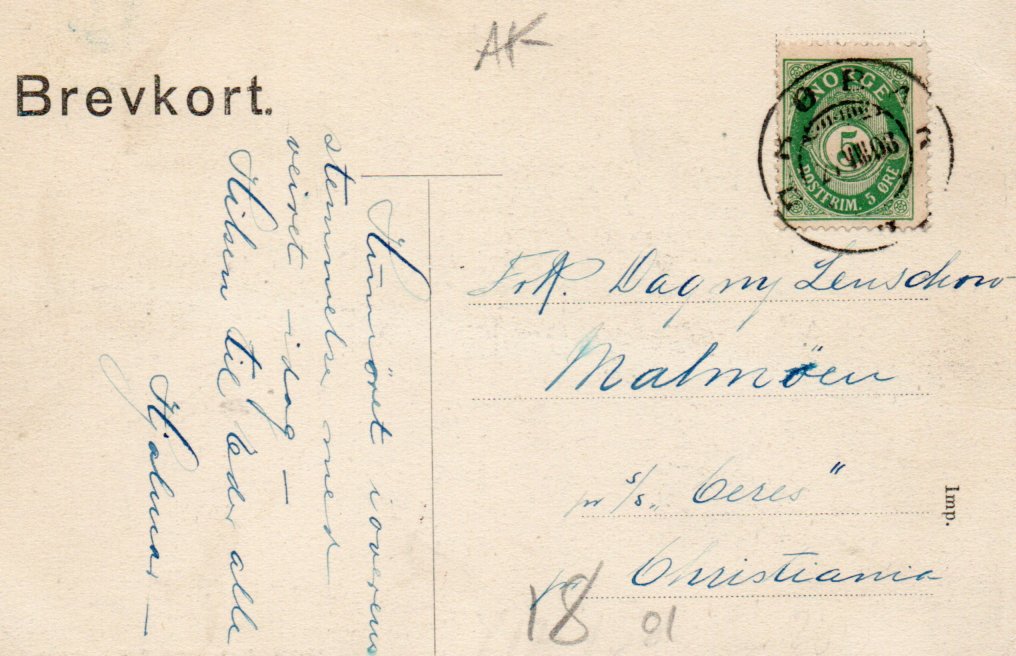 AK
Brevkort.
NORGE
5
POSTFRIM. 5 ØRE
VIII.03
Humöret i overens
stemmelse med
veiret idag —
Hilsen til Eder alle
Hjalmar —
Frk. Dagny Lenschow
Malmöen
pr s/s „Ceres"
pr Christiania
Imp.
18
01